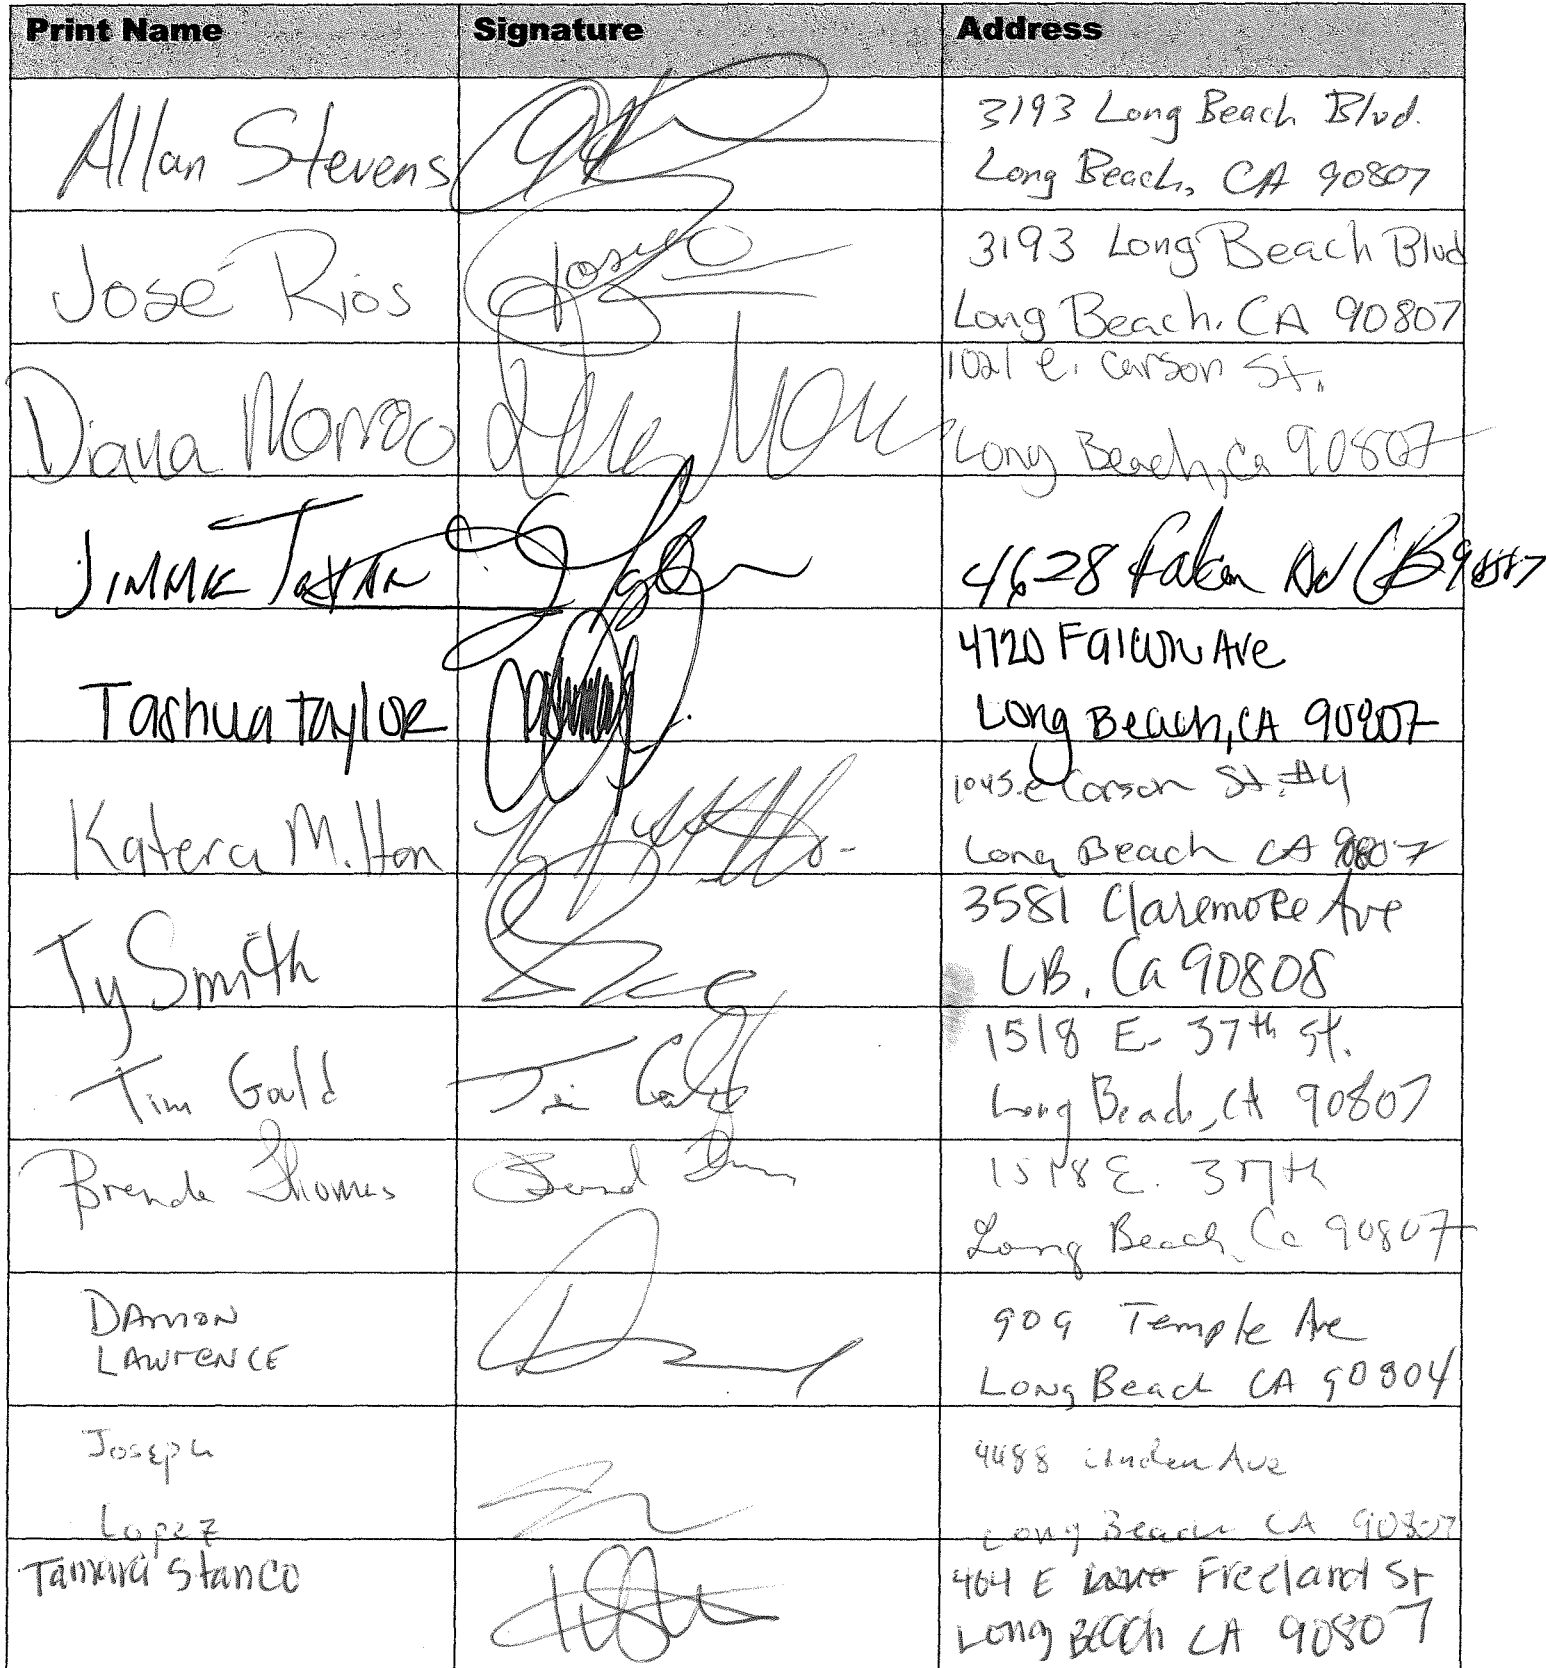 Print Name Signature Address
Allan Stevens
3193 Long Beach Blvd.
Long Beach, CA 90807
José Rios
3193 Long Beach Blvd
Long Beach, CA 90807
Diana
1021 e. Carson St.
Long Beach, Ca 90807
Jimmie
4628
Tashua Taylor
4720 Falcon Ave
Long Beach, CA 90807
Katera
1045 e Carson St. #4
Long Beach CA 90807
Ty Smith
3581 Claremore Ave
LB, Ca 90808
Tim Gould
Tim
1518 E. 37th St.
Long Beach, CA 90807
Brenda Thomas
1518 E. 37th
Long Beach, Ca 90807
Damon
Lawrence
909 Temple Ave
Long Beach CA 90804
Joseph
Lopez
4488 Linden Ave
Long Beach CA 90807
Tamara Stanco
464 E Freeland St
Long Beach CA 90807